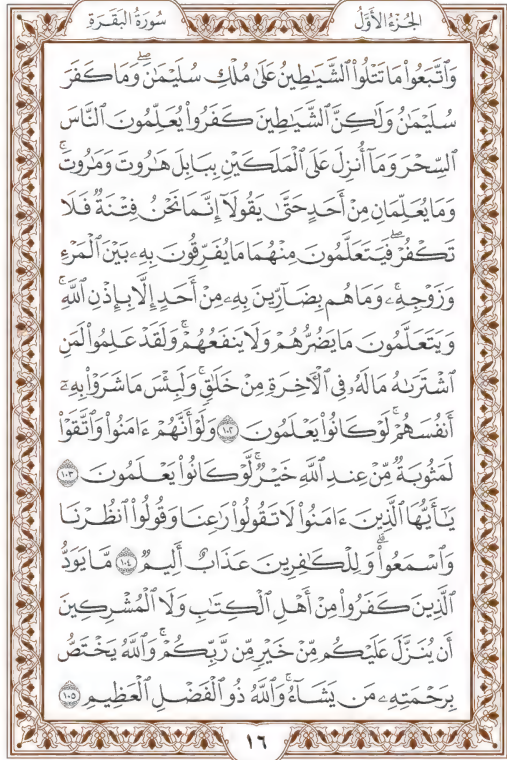 الجُزْءُ الأَوَّلُ سُورَةُ البَقَرَةِ
وَٱتَّبَعُوا۟ مَا تَتْلُوا۟ ٱلشَّيَٰطِينُ عَلَىٰ مُلْكِ سُلَيْمَٰنَۖ وَمَا كَفَرَ
سُلَيْمَٰنُ وَلَٰكِنَّ ٱلشَّيَٰطِينَ كَفَرُوا۟ يُعَلِّمُونَ ٱلنَّاسَ
ٱلسِّحْرَ وَمَآ أُنزِلَ عَلَى ٱلْمَلَكَيْنِ بِبَابِلَ هَٰرُوتَ وَمَٰرُوتَۚ
وَمَا يُعَلِّمَانِ مِنْ أَحَدٍ حَتَّىٰ يَقُولَآ إِنَّمَا نَحْنُ فِتْنَةٌ فَلَا
تَكْفُرْۖ فَيَتَعَلَّمُونَ مِنْهُمَا مَا يُفَرِّقُونَ بِهِۦ بَيْنَ ٱلْمَرْءِ
وَزَوْجِهِۦۚ وَمَا هُم بِضَآرِّينَ بِهِۦ مِنْ أَحَدٍ إِلَّا بِإِذْنِ ٱللَّهِۚ
وَيَتَعَلَّمُونَ مَا يَضُرُّهُمْ وَلَا يَنفَعُهُمْۚ وَلَقَدْ عَلِمُوا۟ لَمَنِ
ٱشْتَرَىٰهُ مَا لَهُۥ فِى ٱلْءَاخِرَةِ مِنْ خَلَٰقٍۚ وَلَبِئْسَ مَا شَرَوْا۟ بِهِۦٓ
أَنفُسَهُمْۚ لَوْ كَانُوا۟ يَعْلَمُونَ ١٠٢ وَلَوْ أَنَّهُمْ ءَامَنُوا۟ وَٱتَّقَوْا۟
لَمَثُوبَةٌ مِّنْ عِندِ ٱللَّهِ خَيْرٌۖ لَّوْ كَانُوا۟ يَعْلَمُونَ ١٠٣
يَٰٓأَيُّهَا ٱلَّذِينَ ءَامَنُوا۟ لَا تَقُولُوا۟ رَٰعِنَا وَقُولُوا۟ ٱنظُرْنَا
وَٱسْمَعُوا۟ۗ وَلِلْكَٰفِرِينَ عَذَابٌ أَلِيمٌ ١٠٤ مَّا يَوَدُّ
ٱلَّذِينَ كَفَرُوا۟ مِنْ أَهْلِ ٱلْكِتَٰبِ وَلَا ٱلْمُشْرِكِينَ
أَن يُنَزَّلَ عَلَيْكُم مِّنْ خَيْرٍ مِّن رَّبِّكُمْۗ وَٱللَّهُ يَخْتَصُّ
بِرَحْمَتِهِۦ مَن يَشَآءُۚ وَٱللَّهُ ذُو ٱلْفَضْلِ ٱلْعَظِيمِ ١٠٥
١٦